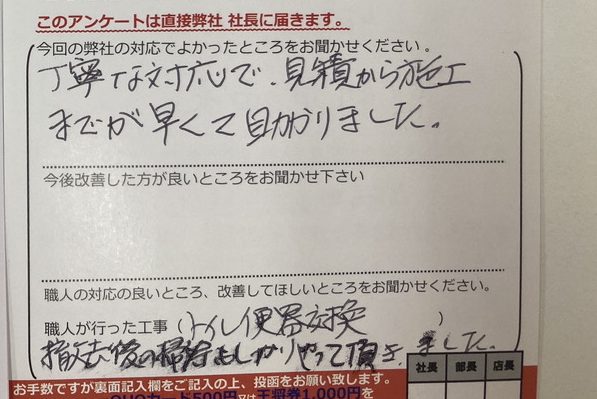 このアンケートは直接弊社 社長に届きます。
今回の弊社の対応でよかったところをお聞かせください。
丁寧な対応で、見積から施工
までが早くて助かりました。
今後改善した方が良いところをお聞かせ下さい
職人の対応の良いところ、改善してほしいところをお聞かせください。
職人が行った工事（トイレ便器交換）
撤去後の掃除もしっかりやって頂き、ました。
社長 部長 店長
お手数ですが裏面記入欄をご記入の上、投函をお願い致します。
QUOカード500円又は王将券1,000円を